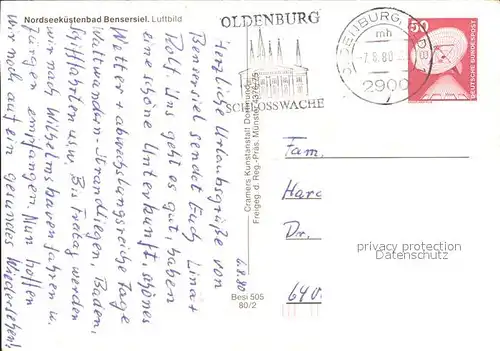 Nordseeküstenbad Bensersiel. Luftbild
OLDENBURG
SCHLOSSWACHE
OLDENBURG, OLDB 1
mh
-7.8.80
2900
50
DEUTSCHE BUNDESPOST
Herzliche Urlaubsgrüße von
Bensersiel sendet Euch Lina +
Rolf. Uns geht es gut, haben
eine schöne Unterkunft, schönes
Wetter + abwechslungsreiche Tage
Wattwandern - Strandliegen, Baden,
Schiffahrten u.s.w. Bis Freitag werden
wir nach Wilhelmshaven fahren u.
Jürgen empfangen. Nun hoffen
wir noch auf ein gesundes Wiedersehen!
6.8.80
Besi 505
80/2
Cramers Kunstanstalt Dortmund
Freigeg. d. Reg.-Präs. Münster 4376/75
Fam.
Harc
Dr.
640
privacy protection
Datenschutz